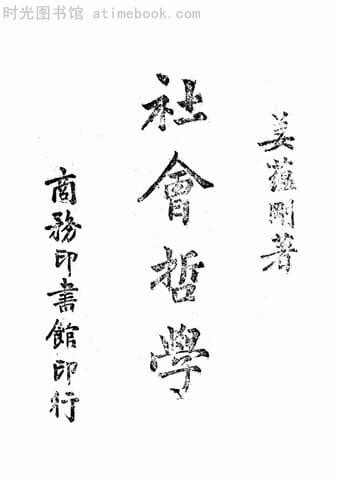 时光图书馆 atimebook.com
姜蘊剛著
社會哲學
商務印書館印行